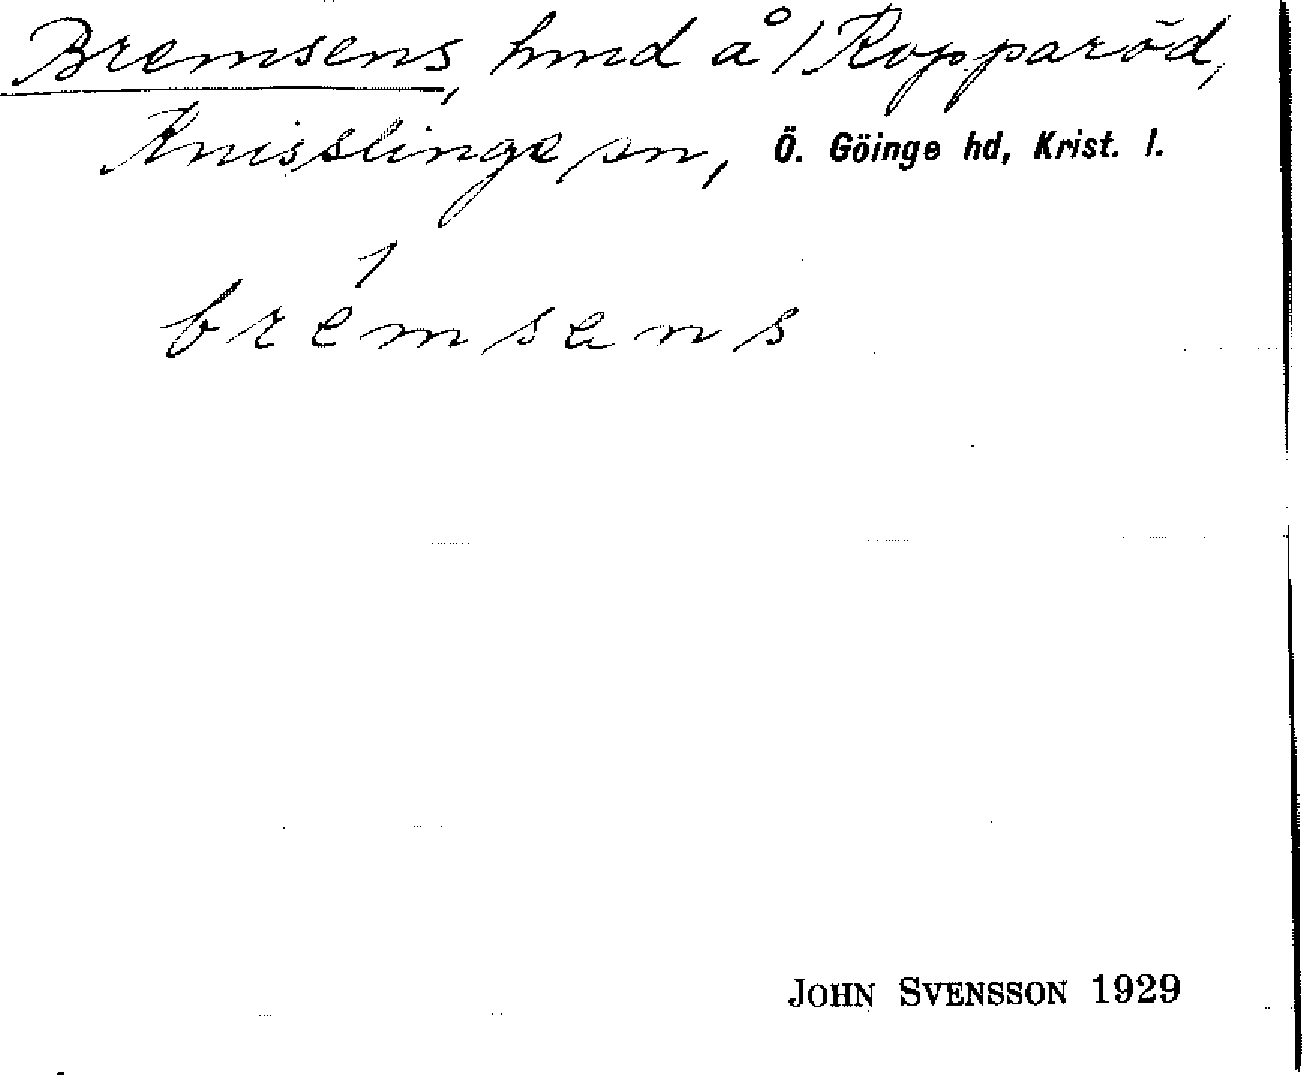 Bremsens, hmd å 1 Kopparöd,
Knisslinge sn, Ö. Göinge hd, Krist. l.
bremsens
JOHN SVENSSON 1929